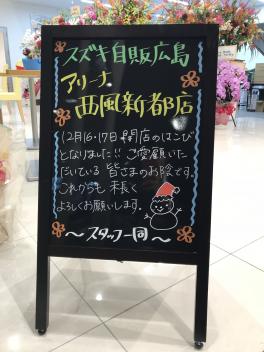 スズキ自販広島
アリーナ
西風新都店
12月16・17日 開店のはこび
となりました!! ご愛顧いた
だいている 皆さまのお陰です。
これからも 末長く
よろしくお願いします。
～スタッフ一同～